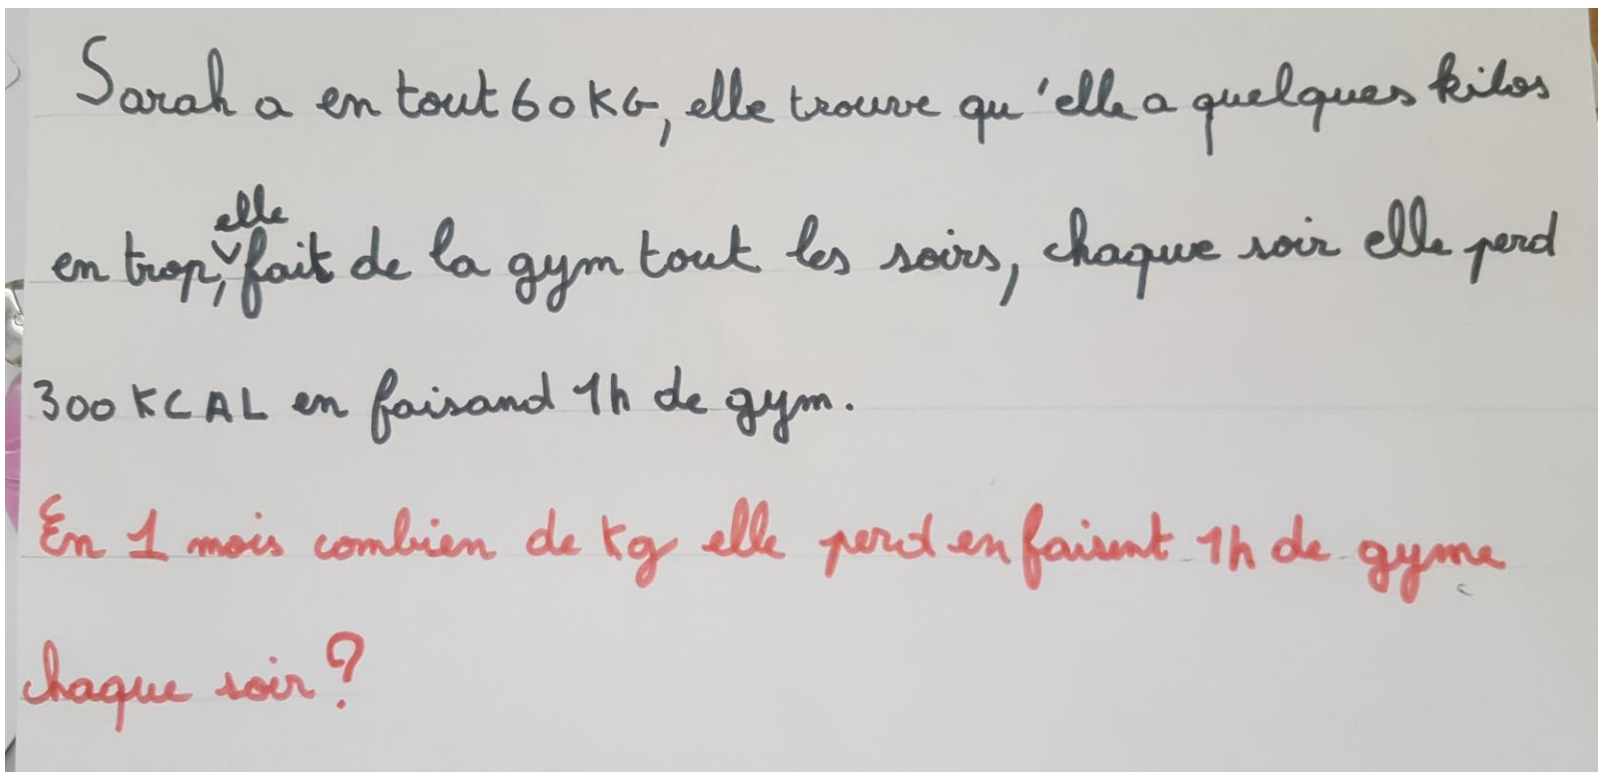 Sarah a en tout 60 KG, elle trouve qu'elle a quelques kilos
en trop, elle fait de la gym tout les soirs, chaque soir elle perd
300 KCAL en faisand 1h de gym.
En 1 mois combien de kg elle perd en faisent 1h de gyme
chaque soir ?